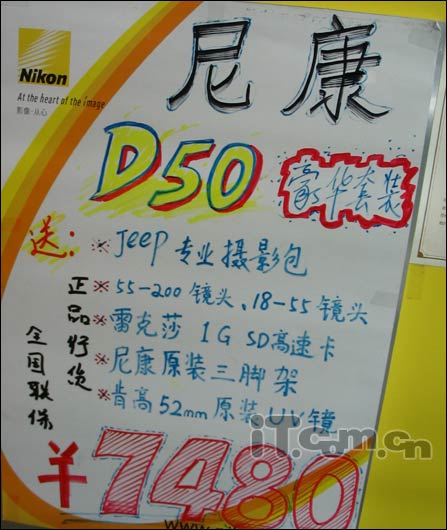 Nikon
At the heart of the image
影像·从心
尼康
D50
豪华套装
送:
※Jeep专业摄影包
※55-200镜头、18-55镜头
※雷克莎 1G SD高速卡
※尼康原装三脚架
※肯高52mm原装UV镜
正品行货
全国联保
¥7480
iT.c.m.cn
www.